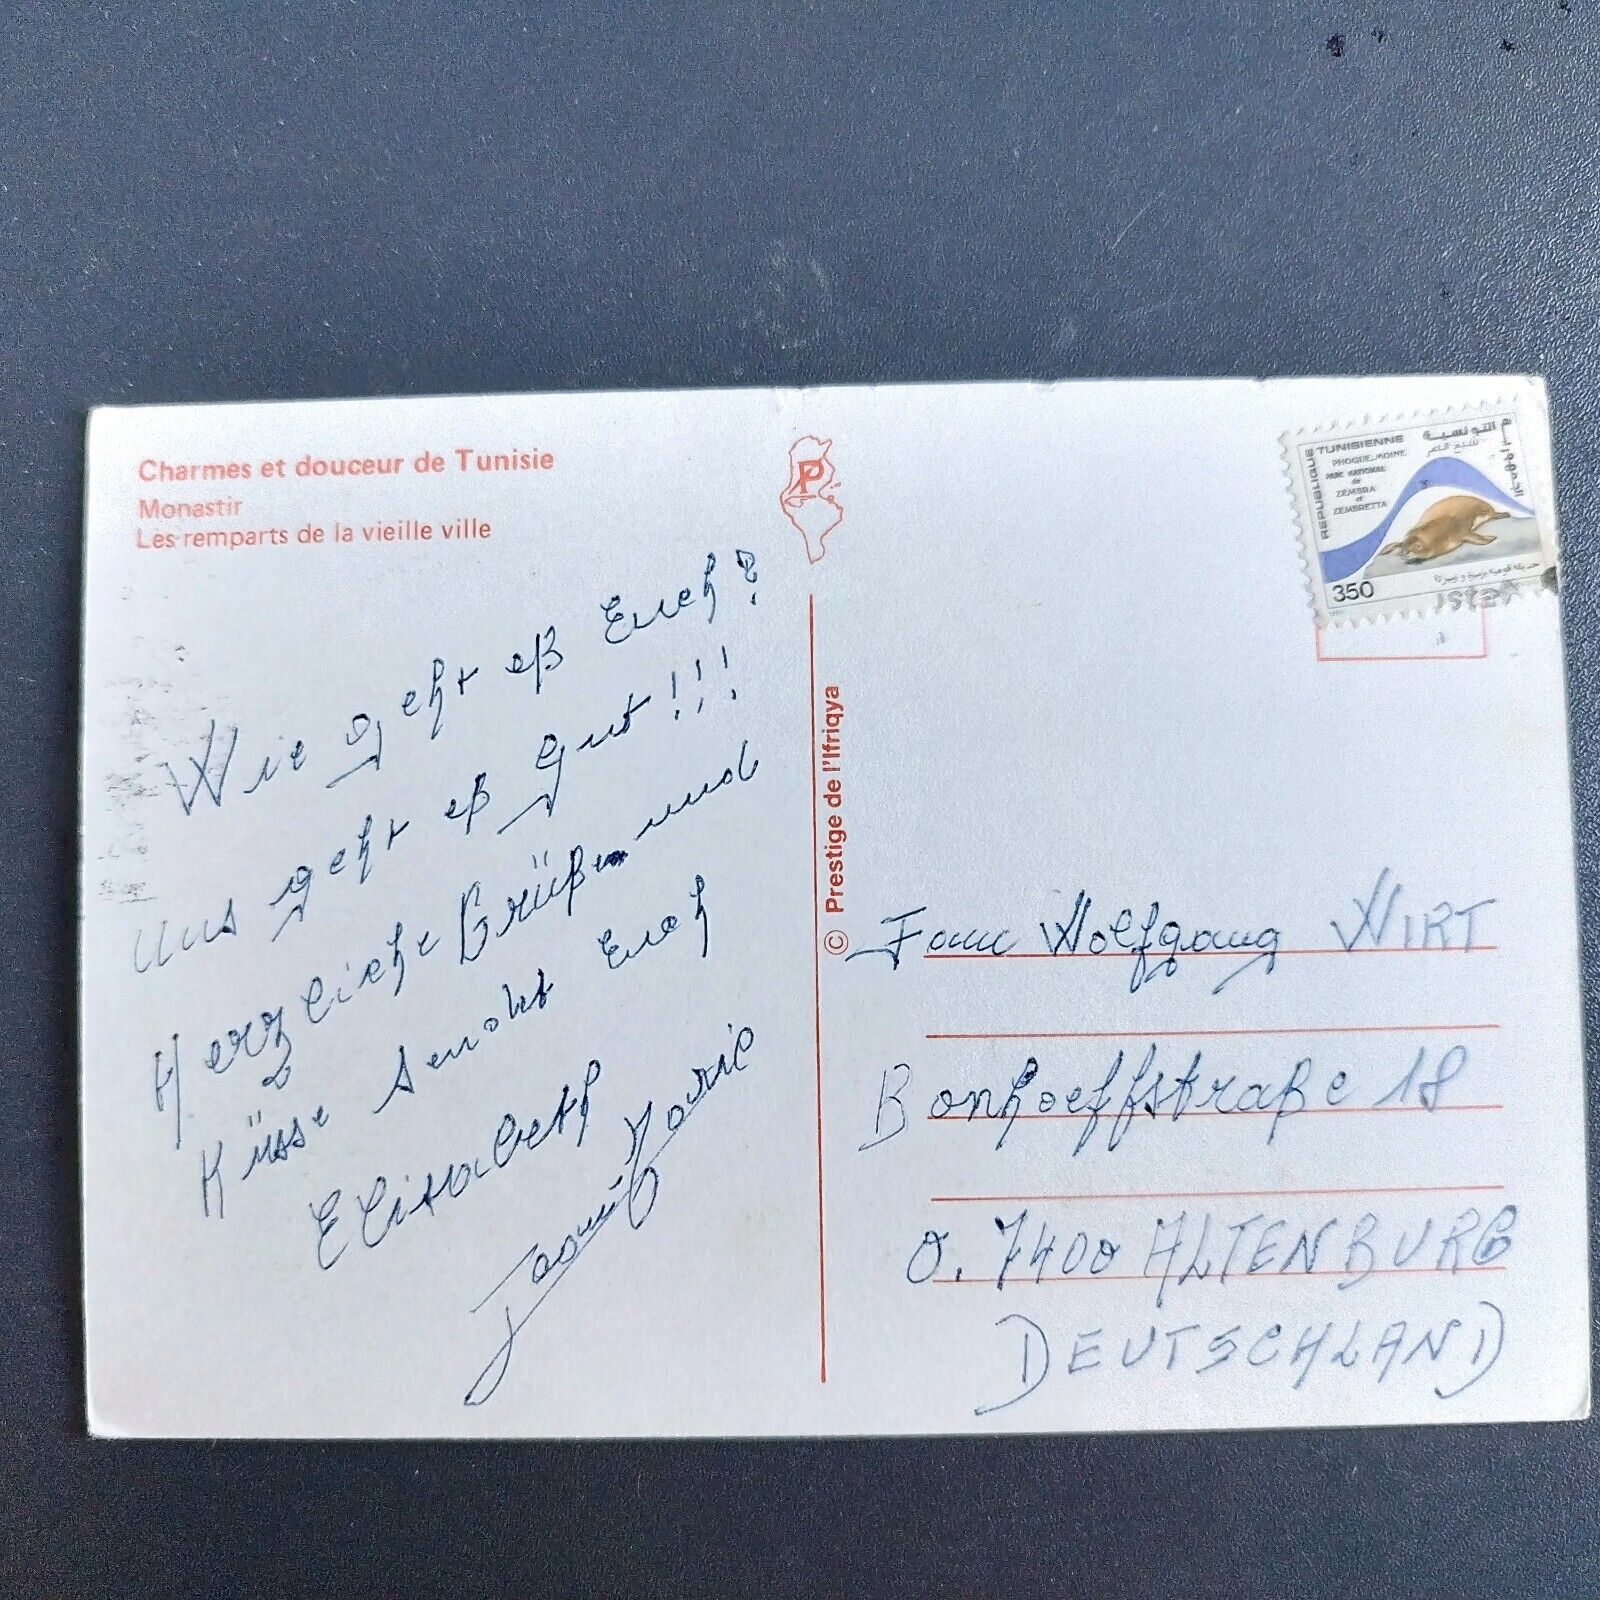 Charmes et douceur de Tunisie
Monastir
Les remparts de la vieille ville
Wie geht eß Euch?
uns geht eß gut!!!
Herzliche Grüßen und
Küsse sendet Euch
Elisabeth
© Prestige de l'Ifriqya
REPUBLIQUE TUNISIENNE
الجمهورية التونسية
PHOQUE-MOINE
PARC NATIONAL
de
ZEMBRA
et
ZEMBRETTA
350
Fam Wolfgang WIRT
Bonhoeffstraße 18
O. 7400 ALTENBURG
DEUTSCHLAND